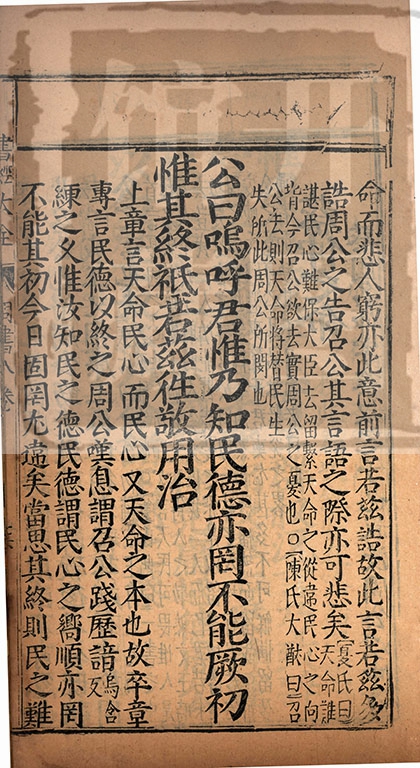 命而悲人窮亦此意前言若茲誥故此言若茲多
誥周公之告召公其言語之際亦可悲矣夏氏曰天命難
諶民心難保大臣去留繫天命之從違民心之向
背今召公欲去實周公之憂也○陳氏大猷曰召
公去則天命將替民生
失所此周公所閔也
公曰嗚呼君惟乃知民德亦罔不能厥初
惟其終祗若茲往敬用治
上章言天命民心而民心又天命之本也故卒章
專言民德以終之周公嘆息謂召公踐歷諳烏含反
練之久惟汝知民之德民德謂民心之嚮順亦罔
不能其初今日固罔尤違矣當思其終則民之難
書經大全 周書八卷